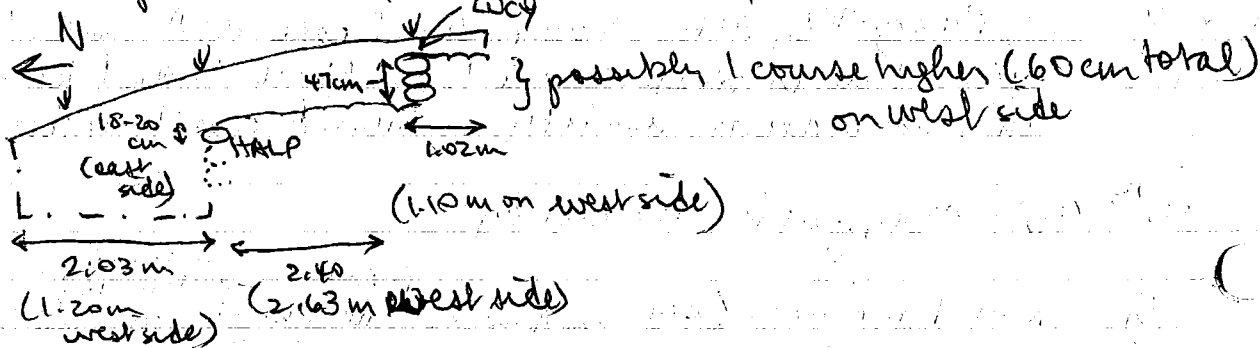 LUCY
N
47cm
} possibly 1 course higher (60cm total)
on west side
18-20
cm
(east
side)
HALP
1.02m
(1.10m on west side)
2.03m
(1.20m
west side)
2.40
(2.63m west side)
(